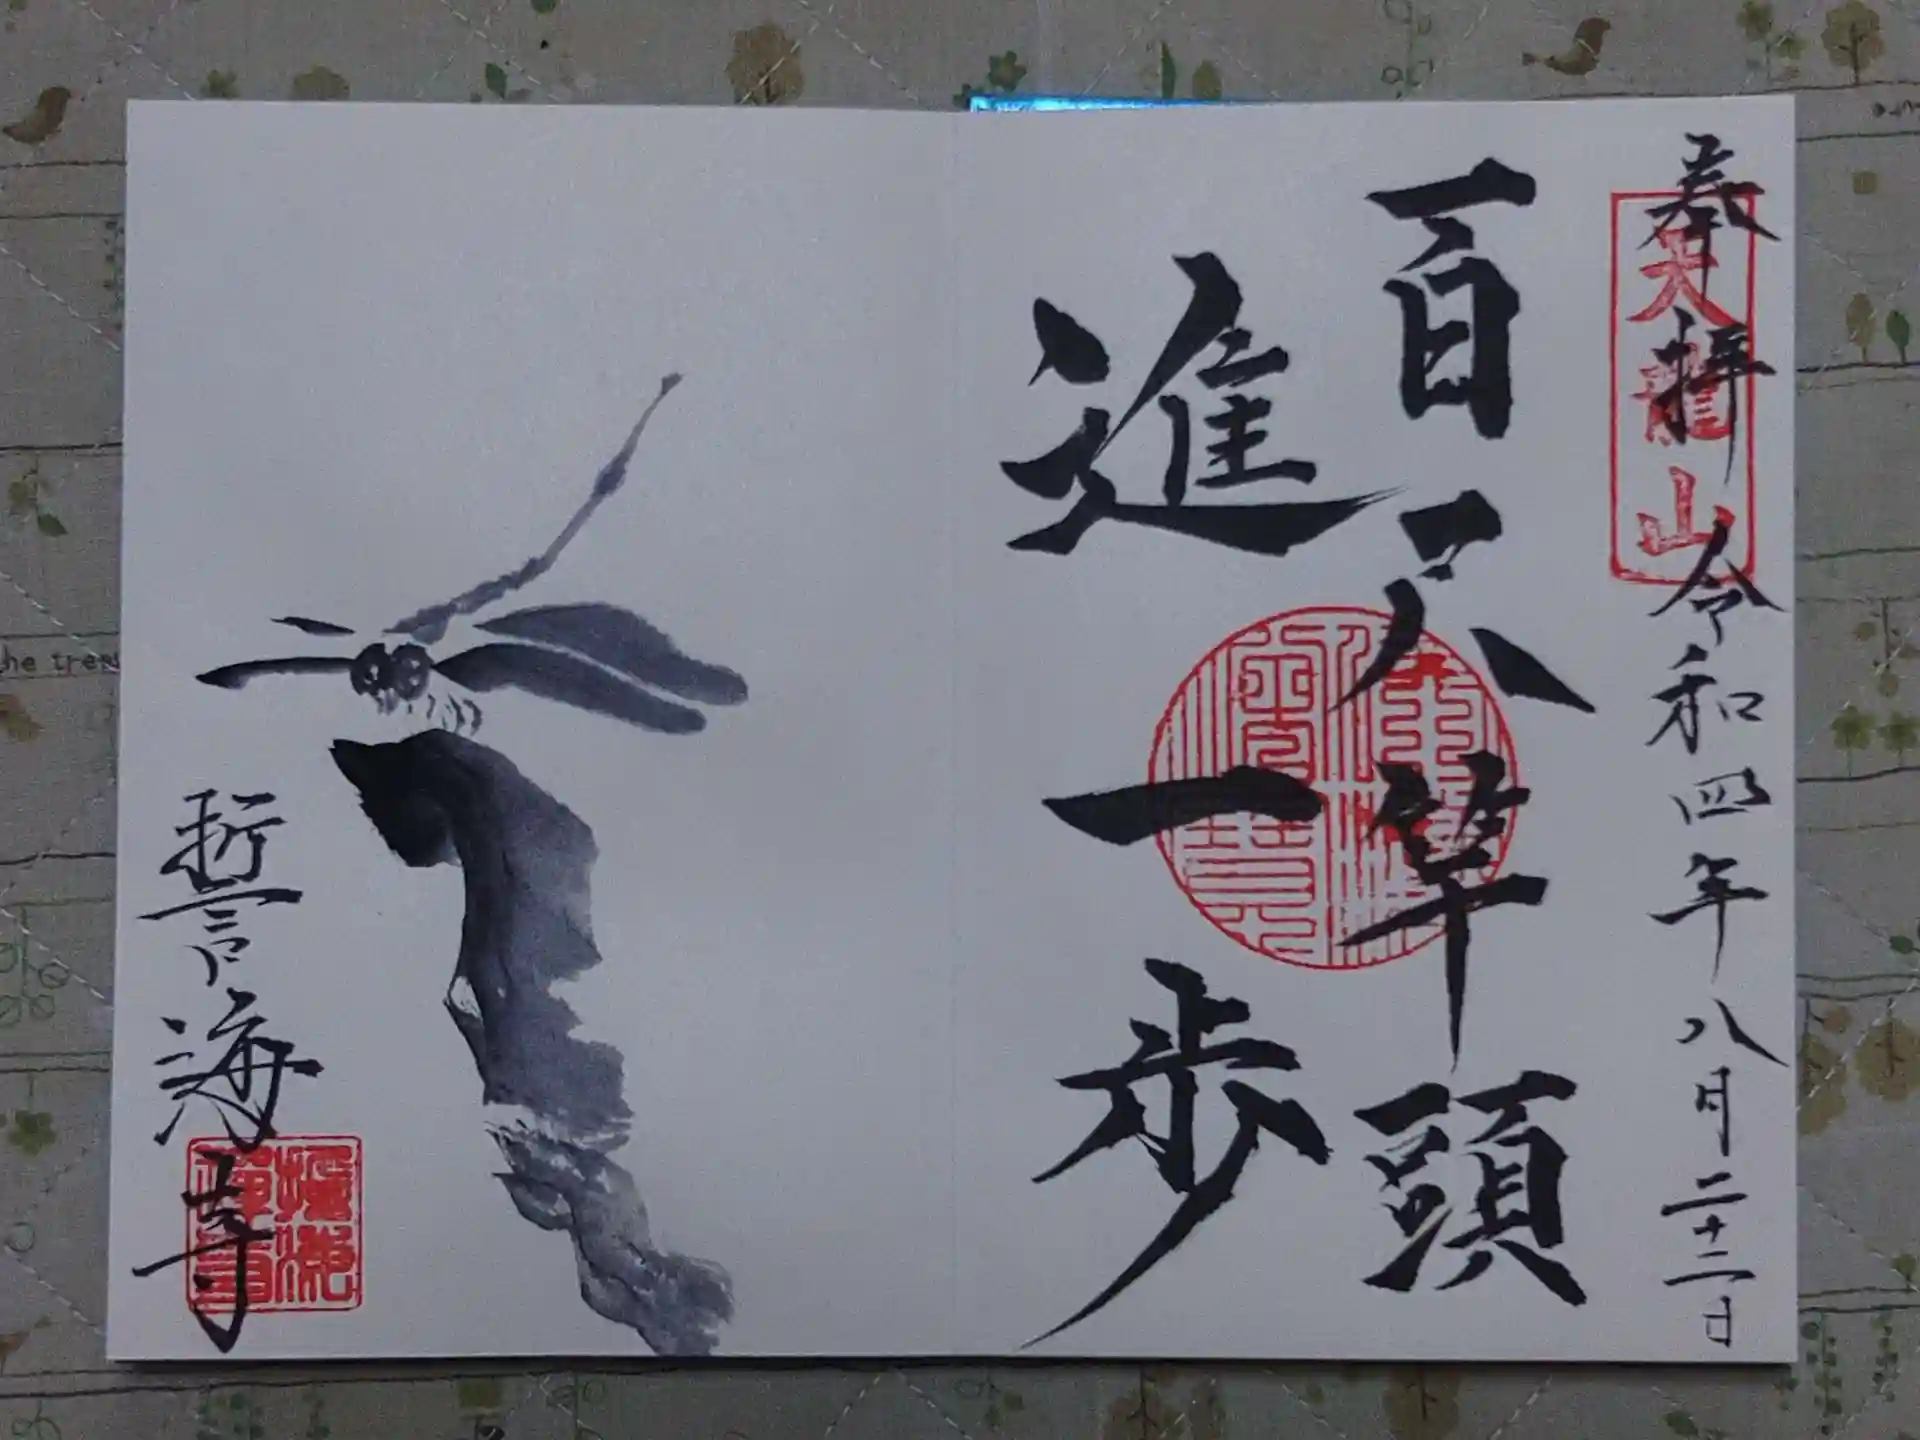 奉拝 令和四年八月二十二日
天龍山
百尺竿頭
進一歩
誓海寺
he trees